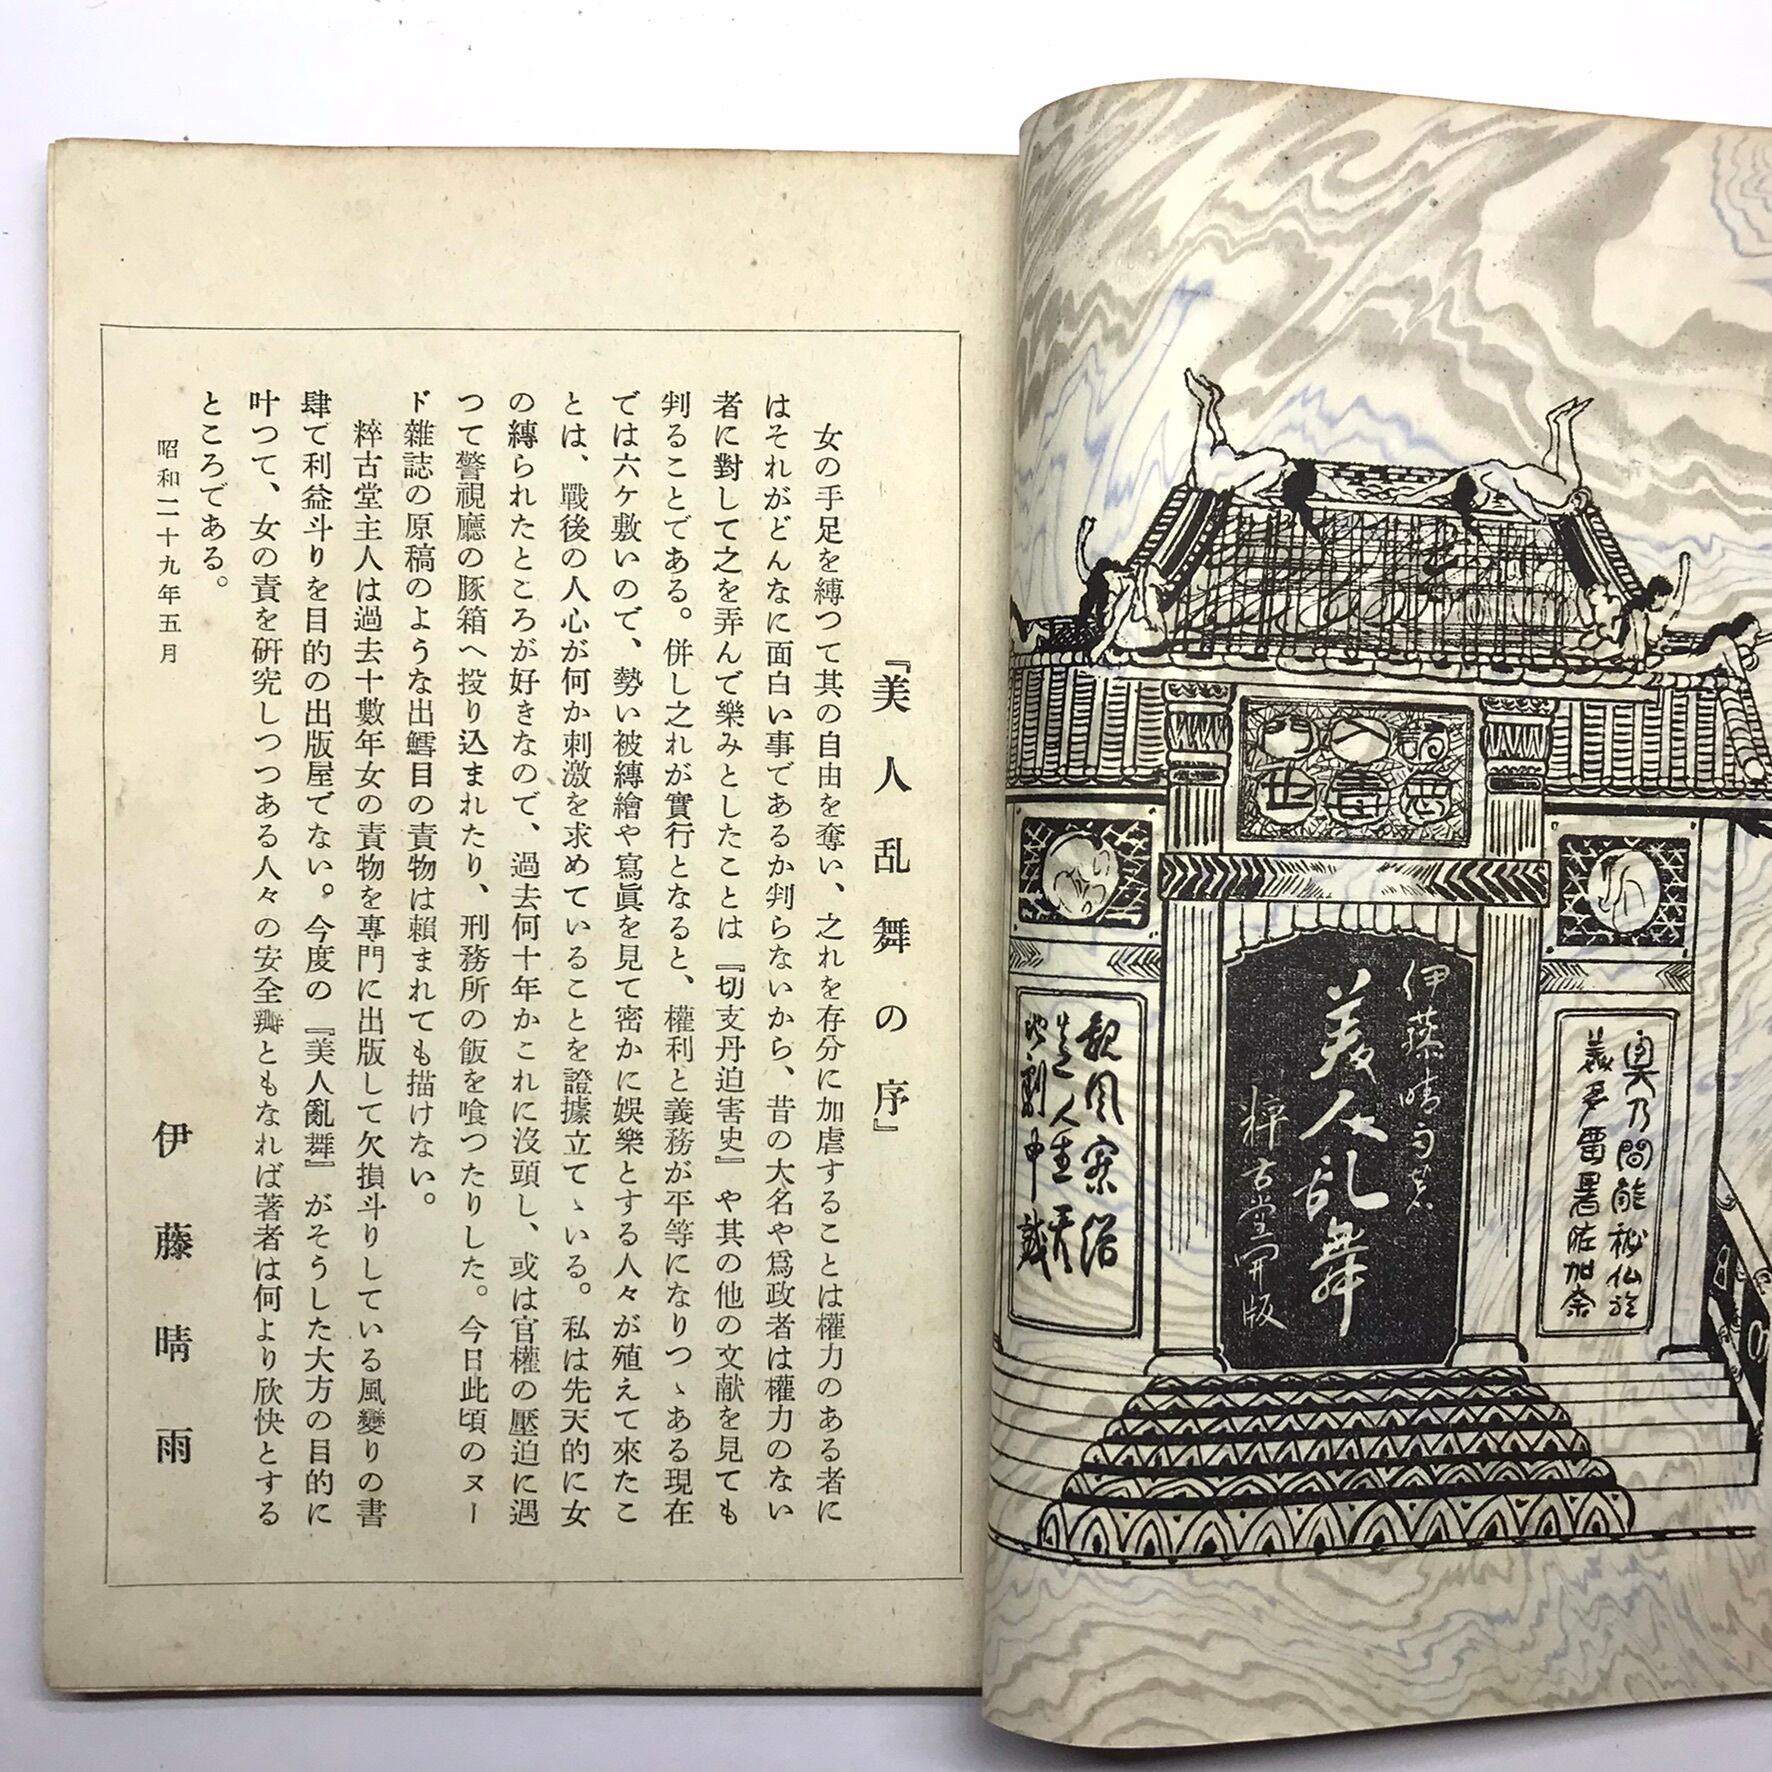 伊藤晴雨著
美人乱舞
粋古堂開版
『美人乱舞の序』
女の手足を縛つて其の自由を奪い、之れを存分に加虐することは權力のある者に
はそれがどんなに面白い事であるか判らないから、昔の大名や爲政者は權力のない
者に對して之を弄んで樂みとしたことは『切支丹迫害史』や其の他の文献を見ても
判ることである。併し之れが實行となると、權利と義務が平等になりつゝある現在
では六ケ敷いので、勢い被縛繪や寫眞を見て密かに娯樂とする人々が殖えて來たこ
とは、戰後の人心が何か刺激を求めていることを證據立てゝいる。私は先天的に女
の縛られたところが好きなので、過去何十年かこれに沒頭し、或は官權の壓迫に遇
つて警視廳の豚箱へ投り込まれたり、刑務所の飯を喰つたりした。今日此頃のヌー
ド雜誌の原稿のような出鱈目の責物は賴まれても描けない。
粹古堂主人は過去十數年女の責物を專門に出版して欠損斗りしている風變りの書
肆で利益斗りを目的の出版屋でない。今度の『美人亂舞』がそうした大方の目的に
叶つて、女の責を研究しつつある人々の安全瓣ともなれば著者は何より欣快とする
ところである。
昭和二十九年五月
伊藤晴雨